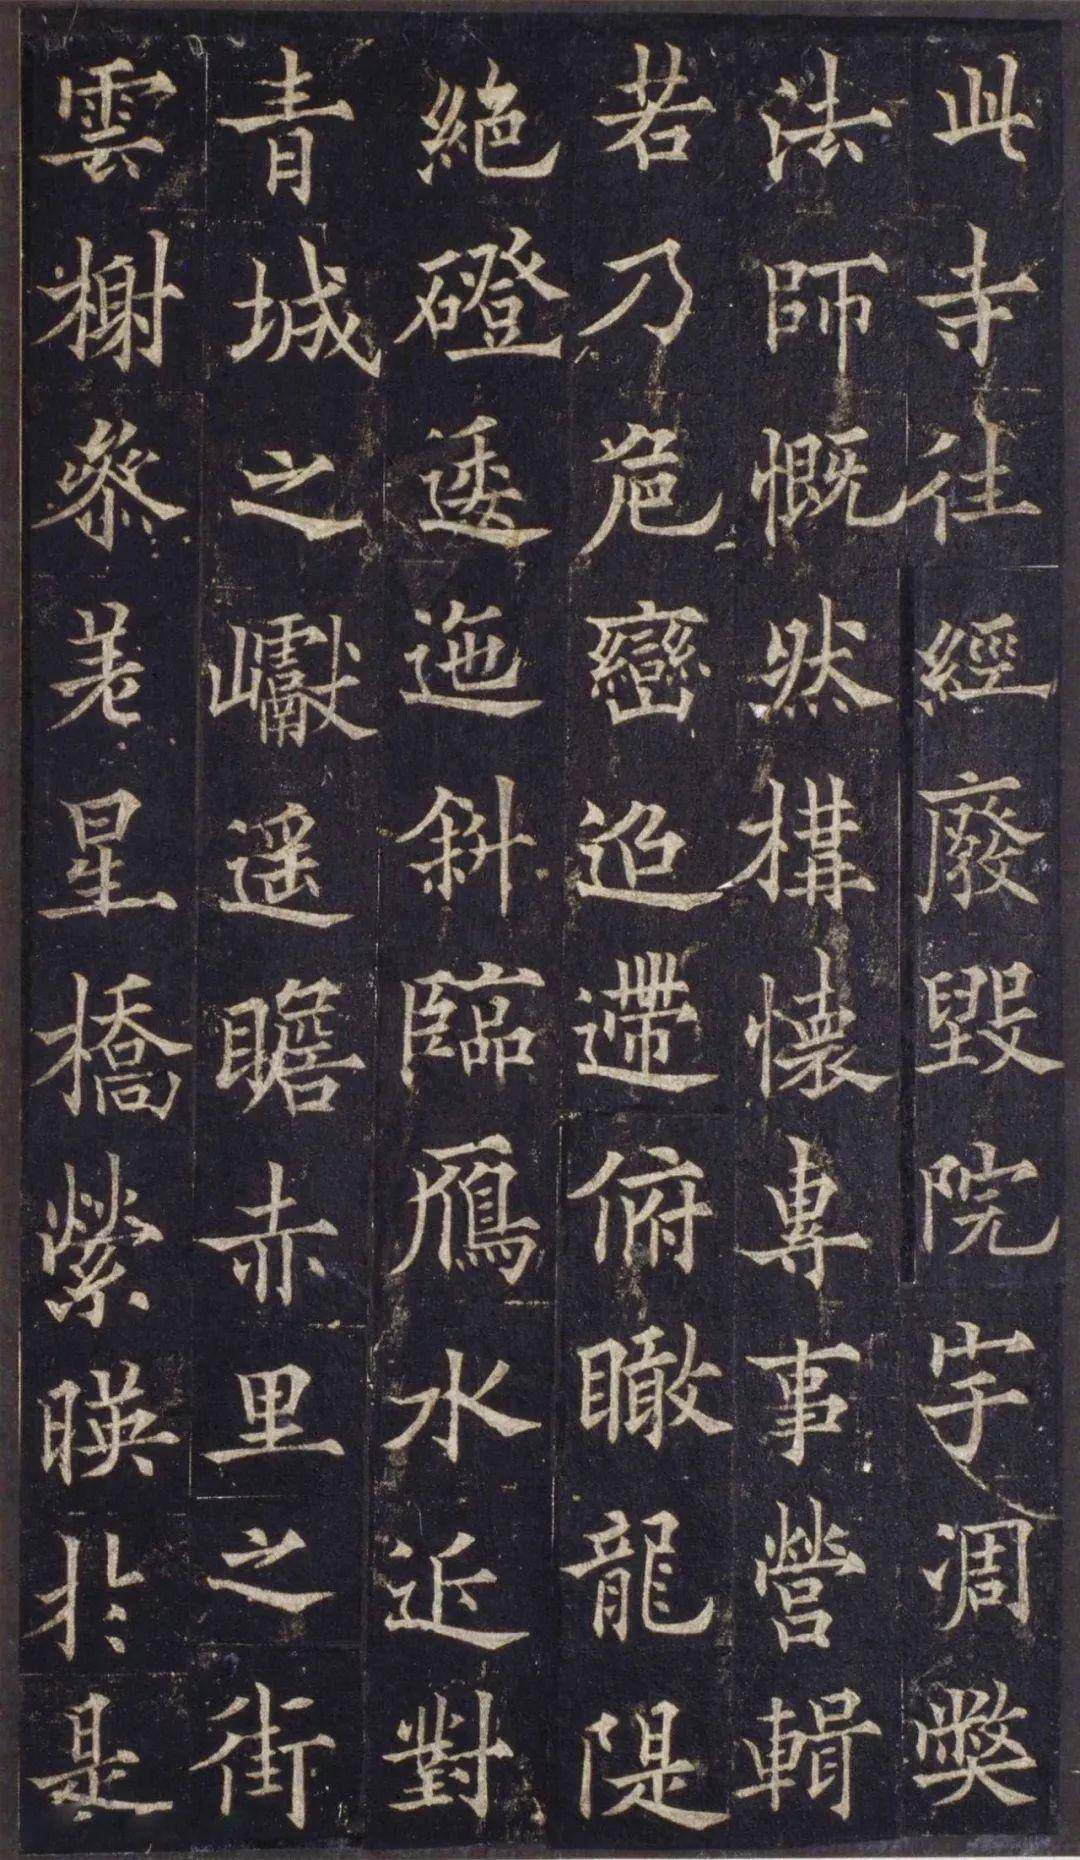 此寺往經廢毀院宇凋弊
法師慨然構懷專事營輯
若乃危巒迢遰俯瞰龍隄
絕磴逶迤斜臨鴈水近對
青城之巘遥瞻赤里之街
雲榭參差星橋縈暎於是